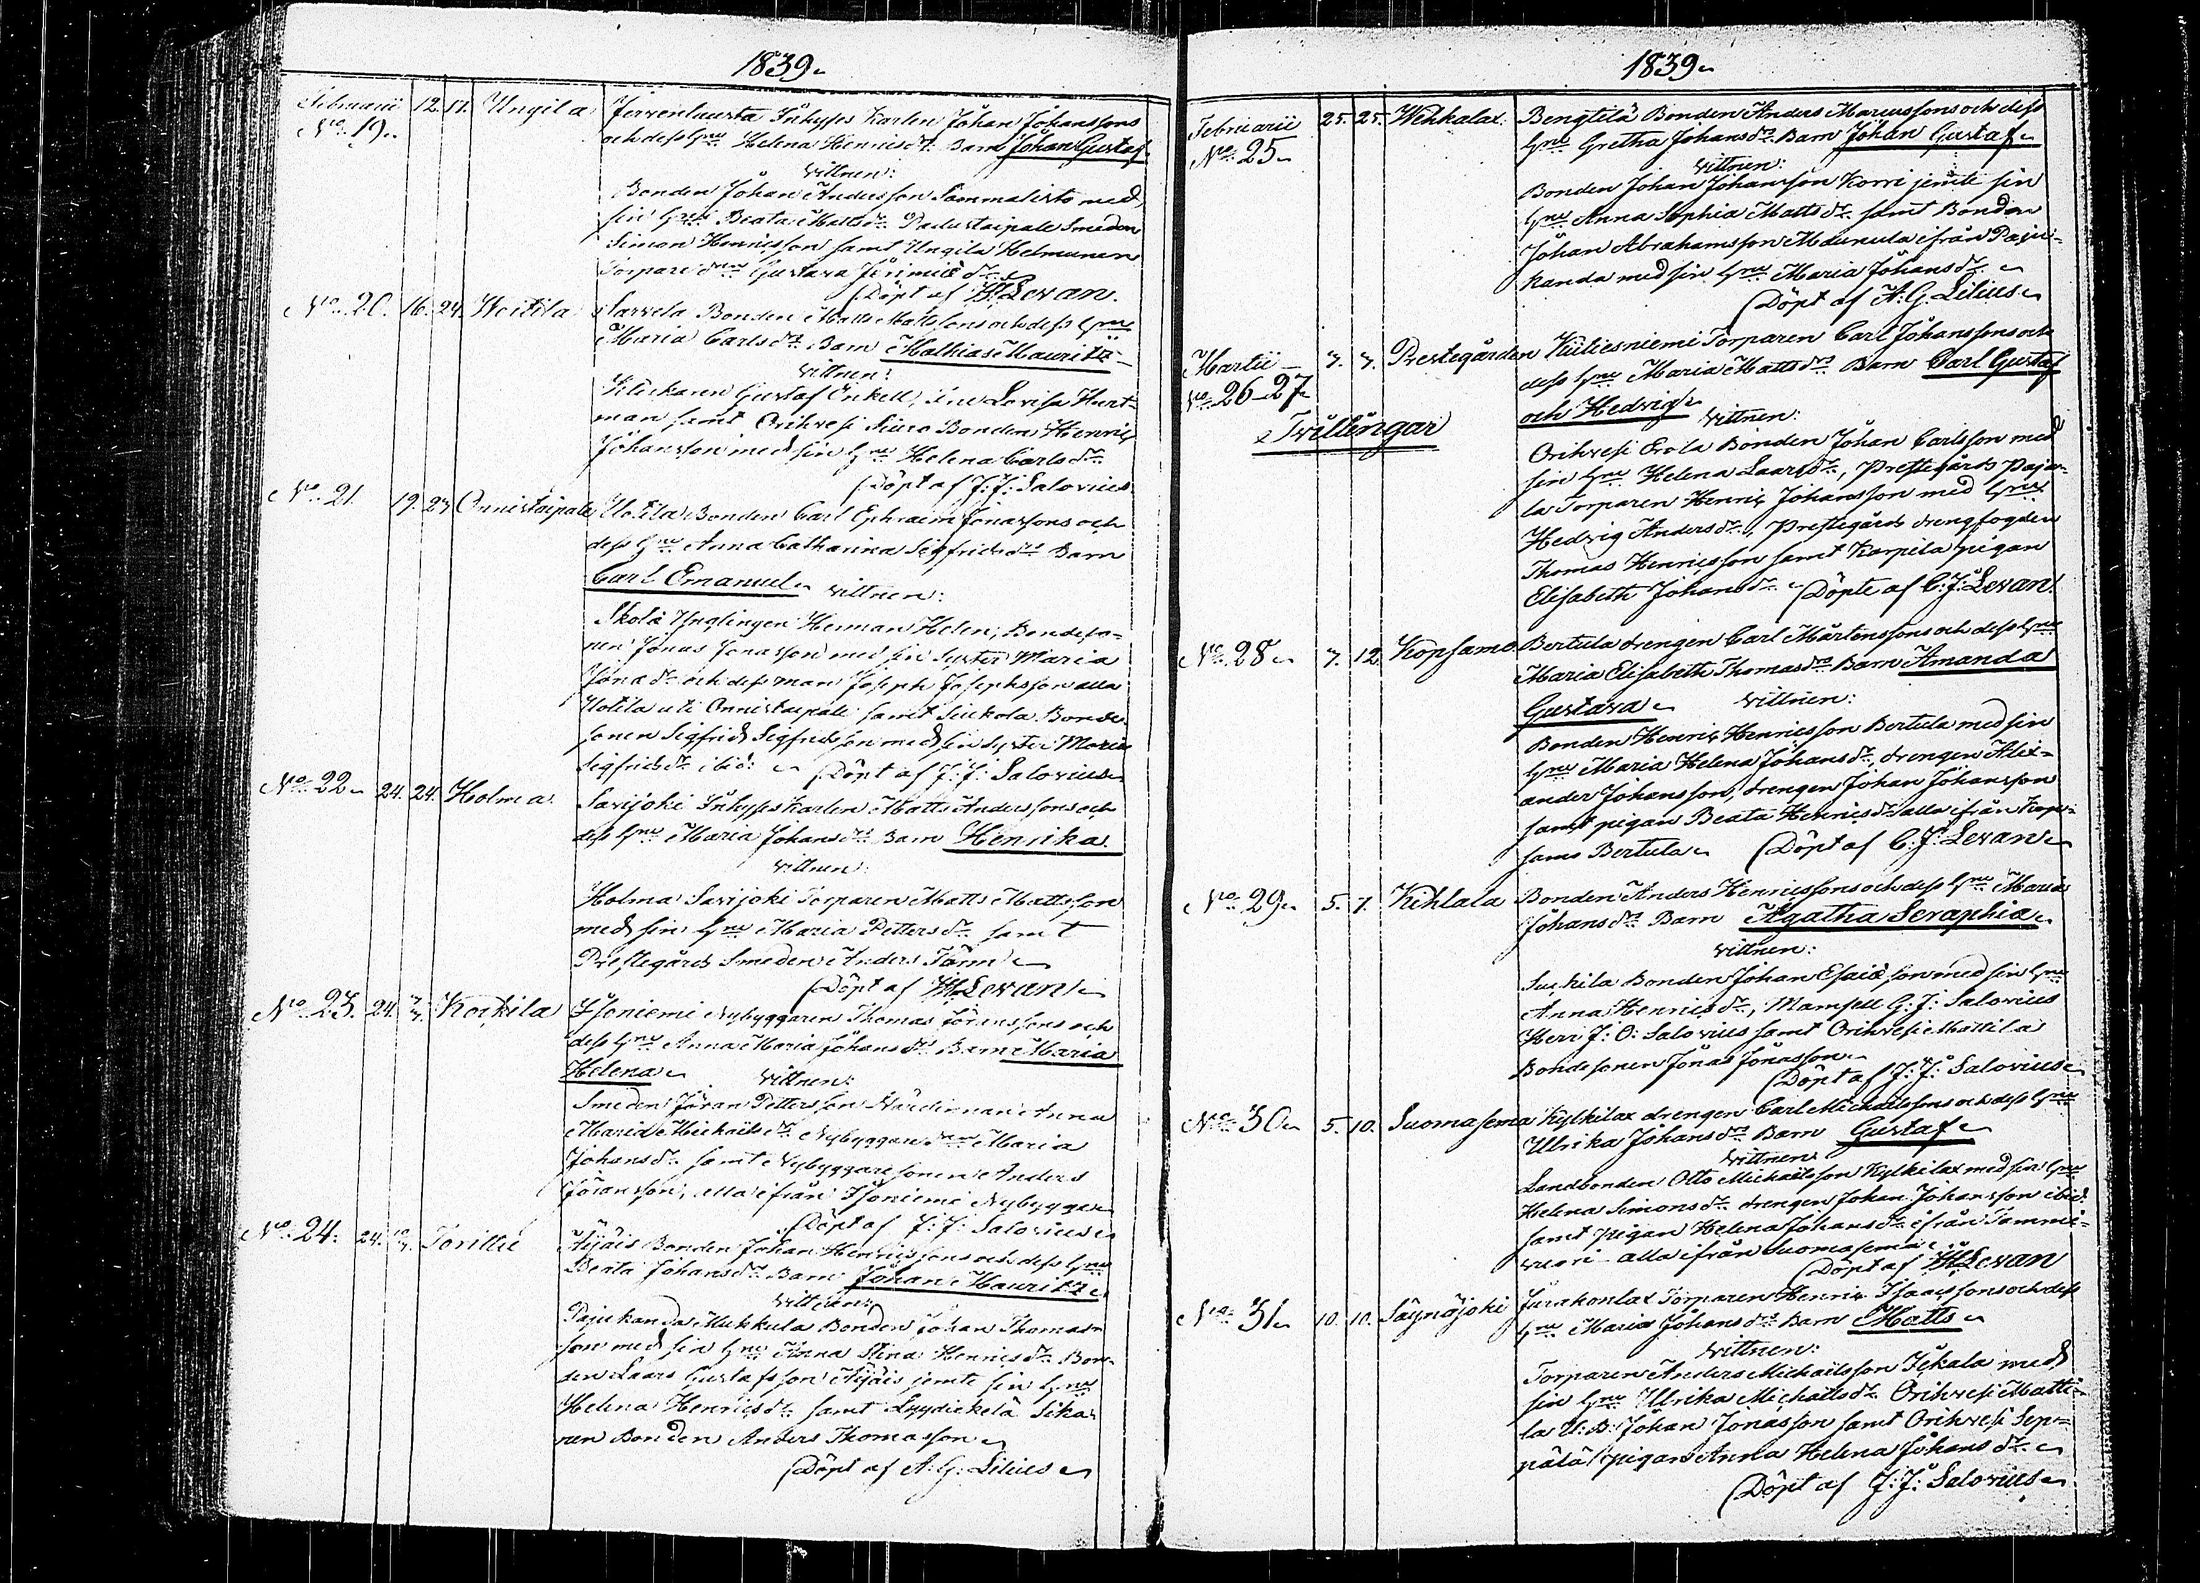 1839
Februarii 12. 17. Ungila Jervenlausta Inhyses Karlen Johan Johanssons
No 19. och dess Hu Helena Henricsdr Barn Johan Gustaf
vittnen:
Bonden Johan Andersson Sammalisto med
sin Hu Beata Mattsdr Padustaipale Smeden
Simon Henricsson samt Ungila Helmunen
Torpare Gustava Jeremiædr
Döpt af H. Levan.
No 20. 16. 24. Woitila Sarvela Bonden Matts Mattssons och dess Hu
Maria Carlsdr Barn Mathias Mauritz
vittnen:
Klockaren Gustaf Enkell, Lovisa Hurt-
man samt Orihvesi Bonden Henric
Johansson med sin Hu Helena Carlsdr
Döpt af J: J: Salovius
No 21. 19. 24. Onnistaipale Uotila Bonden Carl Ephraim Jonassons och
dess Hu Anna Catharina Segfridsdr Barn
Carl Emanuel vittnen:
Skola Ynglingen Herman Helen, Bondeso-
nen Jonas Jonasson med sin Syster Maria
Jonædr och dess man Joseph Josephsson alla
Uotila uti Onnistaipale samt Siukola Bonde
sonen Segfrid Segfridsson med sin Syster Maria
Segfridsdr ibid: Döpt af J: J: Salovius
No 22 24. 24. Holma Savijoki Inhyses Karlen Matts Anderssons och
dess Hu Maria Johansdr Barn Henrika
vittnen:
Holma Savijoki Torparen Matts Mattsson
med sin Hu Maria Pettersdr samt
Prestegårds Smeden Anders Törn
Döpt af H. Levan
No 23. 24. Kockila Isoniemi Nybyggaren Thomas Göranssons och
dess Hu Anna Maria Johansdr Barn Maria
Helena vittnen:
Smeden Göran Pettersson Anna
Maria Michaelsdr Nybyggare Maria
Johansdr samt Nybyggare sonen Anders
Göransson, alla ifrån Isoniemi Nybygge
Döpt af J: J: Salovius
No 24. 24. Torittu Äijäis Bonden Johan Henricssons och dess Hu
Beata Johansdr Barn Johan Mauritz
vittnen:
Pajukanda Mukkula Bonden Johan Thomas-
son med sin Hu Anna Stina Henricsdr Bon-
den Lars Gustafsson Äijäis jemte sin Hu
Helena Henricsdr samt Lyydickelä Sika-
ren Bonden Anders Thomasson
Döpt af A: G: Lilius
1839
Februarii 25. 25. Wehkalax Bengtilä Bonden Anders Marcussons och dess
No 25 Hu Gretha Johansdr Barn Johan Gustaf
vittnen:
Bonden Johan Johansson Korri jemte sin
Hu Anna Sophia Mattsdr samt Bonden
Johan Abrahamsson Maunula ifrån Paju-
kanda med sin Hu Maria Johansdr
Döpt af A: G. Lilius
Martii 7. 7. Prestegården Kutiesniemi Torparen Carl Johanssons och
No 26-27 dess Hu Maria Mattsdr Barn Carl Gustaf
Tvillingar och Hedvig vittnen:
Orihvesi Erola Bonden Johan Carlsson med
sin Hu Helena Larsdr, Prestegårds Paju-
la Torparen Henric Johansson med Hu
Hedvig Andersdr, Prestegårds drengfogden
Thomas Henricsson samt Karpila pigan
Elisabeth Johansdr Döpte af C: J: Levan
No 28 7. 12. Kopsamo Bertula drengen Carl Mårtenssons och dess Hu
Maria Elisabeth Thomasdr Barn Amanda
Gustava vittnen:
Bonden Henric Henricsson Bertula med sin
Hu Maria Helena Johansdr, drengen Alex-
ander Johansson, drengen Johan Johansson
samt pigan Beata Henricsdr alla ifrån Kop-
samo Bertula Döpt af C: J: Levan
No 29 5. 7. Kihlala Bonden Anders Henricssons och dess Hu Maria
Johansdr Barn Agatha Seraphia
vittnen:
Suckila Bonden Johan Esaiæson med sin Hu
Anna Henricsdr, Mamsell G: J: Salovius
Herr J: O: Salovius samt Orihvesi Mattila
Bondesonen Jonas Jonasson
Döpt af J: J: Salovius
No 30 5. 10. Suomasema Kylkilax drengen Carl Michaelssons och dess Hu
Ulrika Johansdr Barn Gustaf
vittnen
Landbonden Otto Michaelsson Kylkilax med sin Hu
Helena Simonsdr drengen Johan Johansson ibid.
samt pigan Helena Johansdr ifrån Tammi-
vuori alla ifrån Suomasema
Döpt af H. Levan
No 31 10. 10. Säynäjoki Jurakonlax Torparen Henric Isaacssons och dess
Hu Maria Johansdr Barn Matts
vittnen:
Torparen Anders Michaelsson Ickala med
sin Hu Ulrika Michaelsdr Orihvesi Matti-
la U: B: Johan Jonasson samt Orihvesi Sep-
pälä pigan Anna Helena Johansdr
Döpt af J: J: Salovius